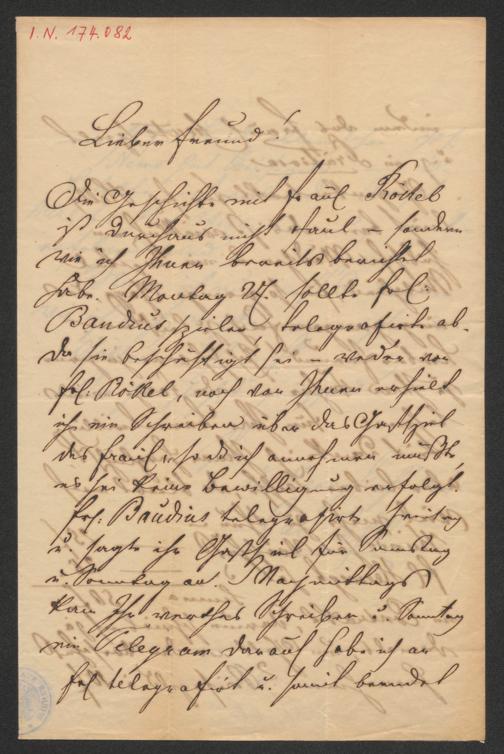 I. N. 174.082
Lieber Freund!
Die Geschichte mit Fräul Röckel
ist durchaus nicht faul – sondern
wie ich Ihnen bereits berichtet
habe. Montag sollte Frl:
Baudius spielen, telegrafirte ab,
da sie beschäftigt sei – weder von
Frl: Röckel, noch von Ihnen erhielt
ich ein Schreiben über das Gastspiel
des Fräul, so daß ich annehmen mußte,
es sei keine Bewilligung erfolgt.
Frl: Baudius telegrafirte Freitag
u. sagte ihr Gastspiel für Samstag
u. Sonntag an. Nachmittags
kam Ihr werthes Schreiben u. Sonntag
ein Telegram darauf hab ich an
Frl telegrafirt u. somit beendet